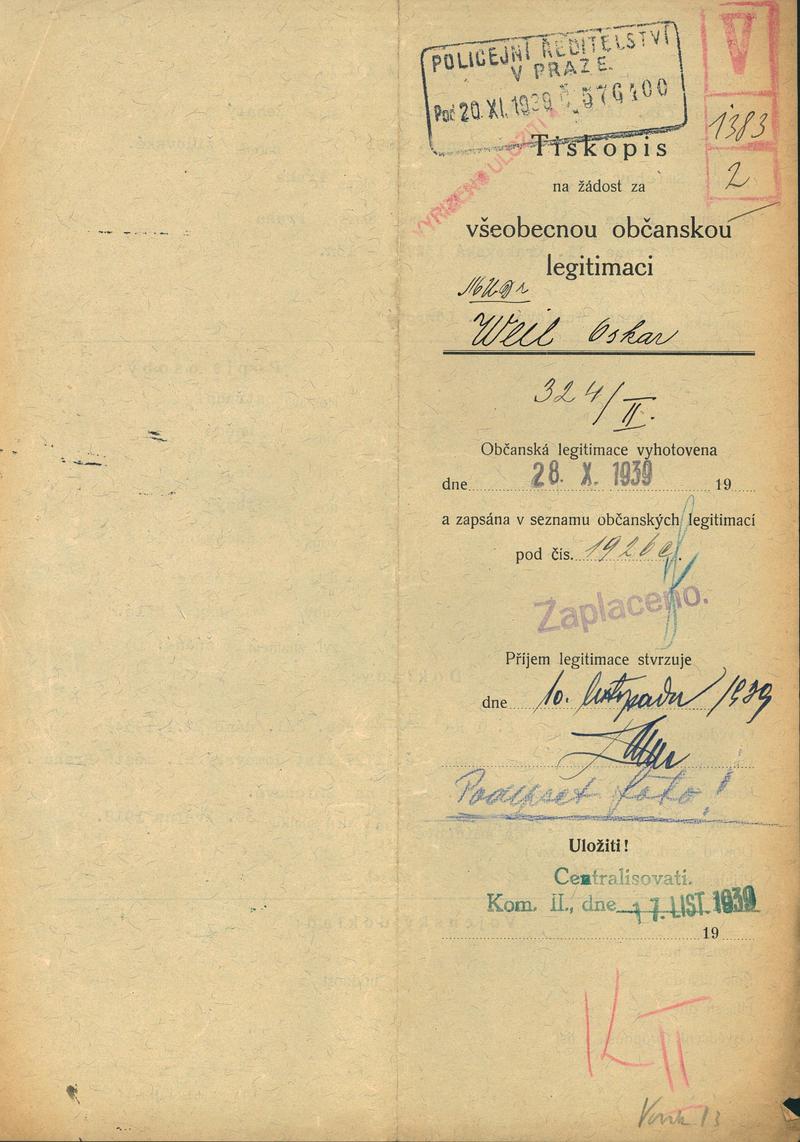 POLICEJNÍ ŘEDITELSTVÍ
V PRAZE.
Poč 20.XI.1939 Č. 576400
V
1383
2
VYŘÍZENO ULOŽITI
Tiskopis
na žádost za
všeobecnou občanskou
legitimaci
MUDr
Weil Oskar
324/II.
Občanská legitimace vyhotovena
dne 28. X. 1939 19
a zapsána v seznamu občanských legitimací
pod čis. 1926
Zaplaceno.
Příjem legitimace stvrzuje
dne 10. listopadu 1939
Podepset foto!
Uložiti!
Centralisovati.
Kom. II., dne 17. LIST. 1939
19
K II